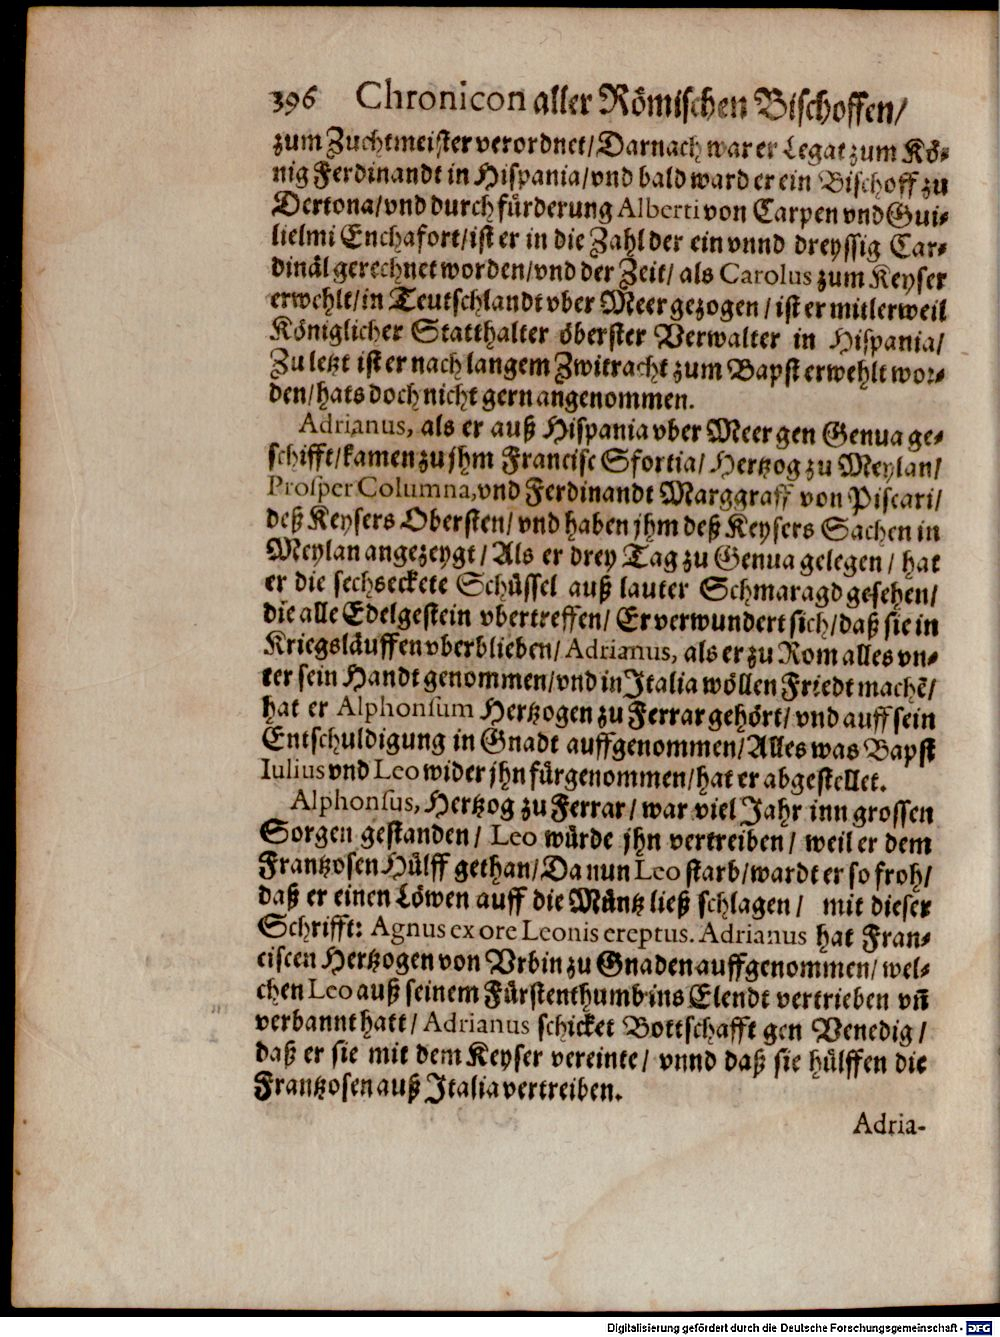 396 Chronicon aller Römischen Bischoffen/
zum Zuchtmeister verordnet/ Darnach war er Legat zum Kö-
nig Ferdinandt in Hispania/ vnd bald ward er ein Bischoff zu
Dertona/ vnd durch fürderung Alberti von Carpen vnd Gui-
lielmi Enchafort/ ist er in die Zahl der ein vnnd dreyssig Car-
dinäl gerechnet worden/ vnd der Zeit/ als Carolus zum Keyser
erwehlt/ in Teutschlandt vber Meer gezogen/ ist er mitlerweil
Königlicher Statthalter öberster Verwalter in Hispania/
Zu letzt ist er nach langem Zwitracht zum Bapst erwehlt wor-
den/ hats doch nicht gern angenommen.
Adrianus, als er auß Hispania vber Meer gen Genua ge-
schifft/ kamen zu jhm Francisc Sfortia/ Hertzog zu Meylan/
Prosper Columna, vnd Ferdinandt Marggraff von Piscari/
deß Keysers Obersten/ vnd haben jhm deß Keysers Sachen in
Meylan angezeygt/ Als er drey Tag zu Genua gelegen/ hat
er die sechseckete Schüssel auß lauter Schmaragd gesehen/
die alle Edelgestein vbertreffen/ Er verwundert sich/ daß sie in
Kriegsläuffen vberblieben/ Adrianus, als er zu Rom alles vn-
ter sein Handt genommen/ vnd in Italia wöllen Friedt machē/
hat er Alphonsum Hertzogen zu Ferrar gehört/ vnd auff sein
Entschuldigung in Gnadt auffgenommen/ Alles was Bapst
Iulius vnd Leo wider jhn fürgenommen/ hat er abgestellet.
Alphonsus, Hertzog zu Ferrar/ war viel Jahr inn grossen
Sorgen gestanden/ Leo würde jhn vertreiben/ weil er dem
Frantzosen Hülff gethan/ Da nun Leo starb/ wardt er so froh/
daß er einen Löwen auff die Müntz ließ schlagen/ mit dieser
Schrifft: Agnus ex ore Leonis ereptus. Adrianus hat Fran-
ciscen Hertzogen von Vrbin zu Gnaden auffgenommen/ wel-
chen Leo auß seinem Fürstenthumb ins Elendt vertrieben vñ
verbannt hatt/ Adrianus schicket Bottschafft gen Venedig/
daß er sie mit dem Keyser vereinte/ vnnd daß sie hülffen die
Frantzosen auß Italia vertreiben.
Adria-
Digitalisierung gefördert durch die Deutsche Forschungsgemeinschaft - DFG